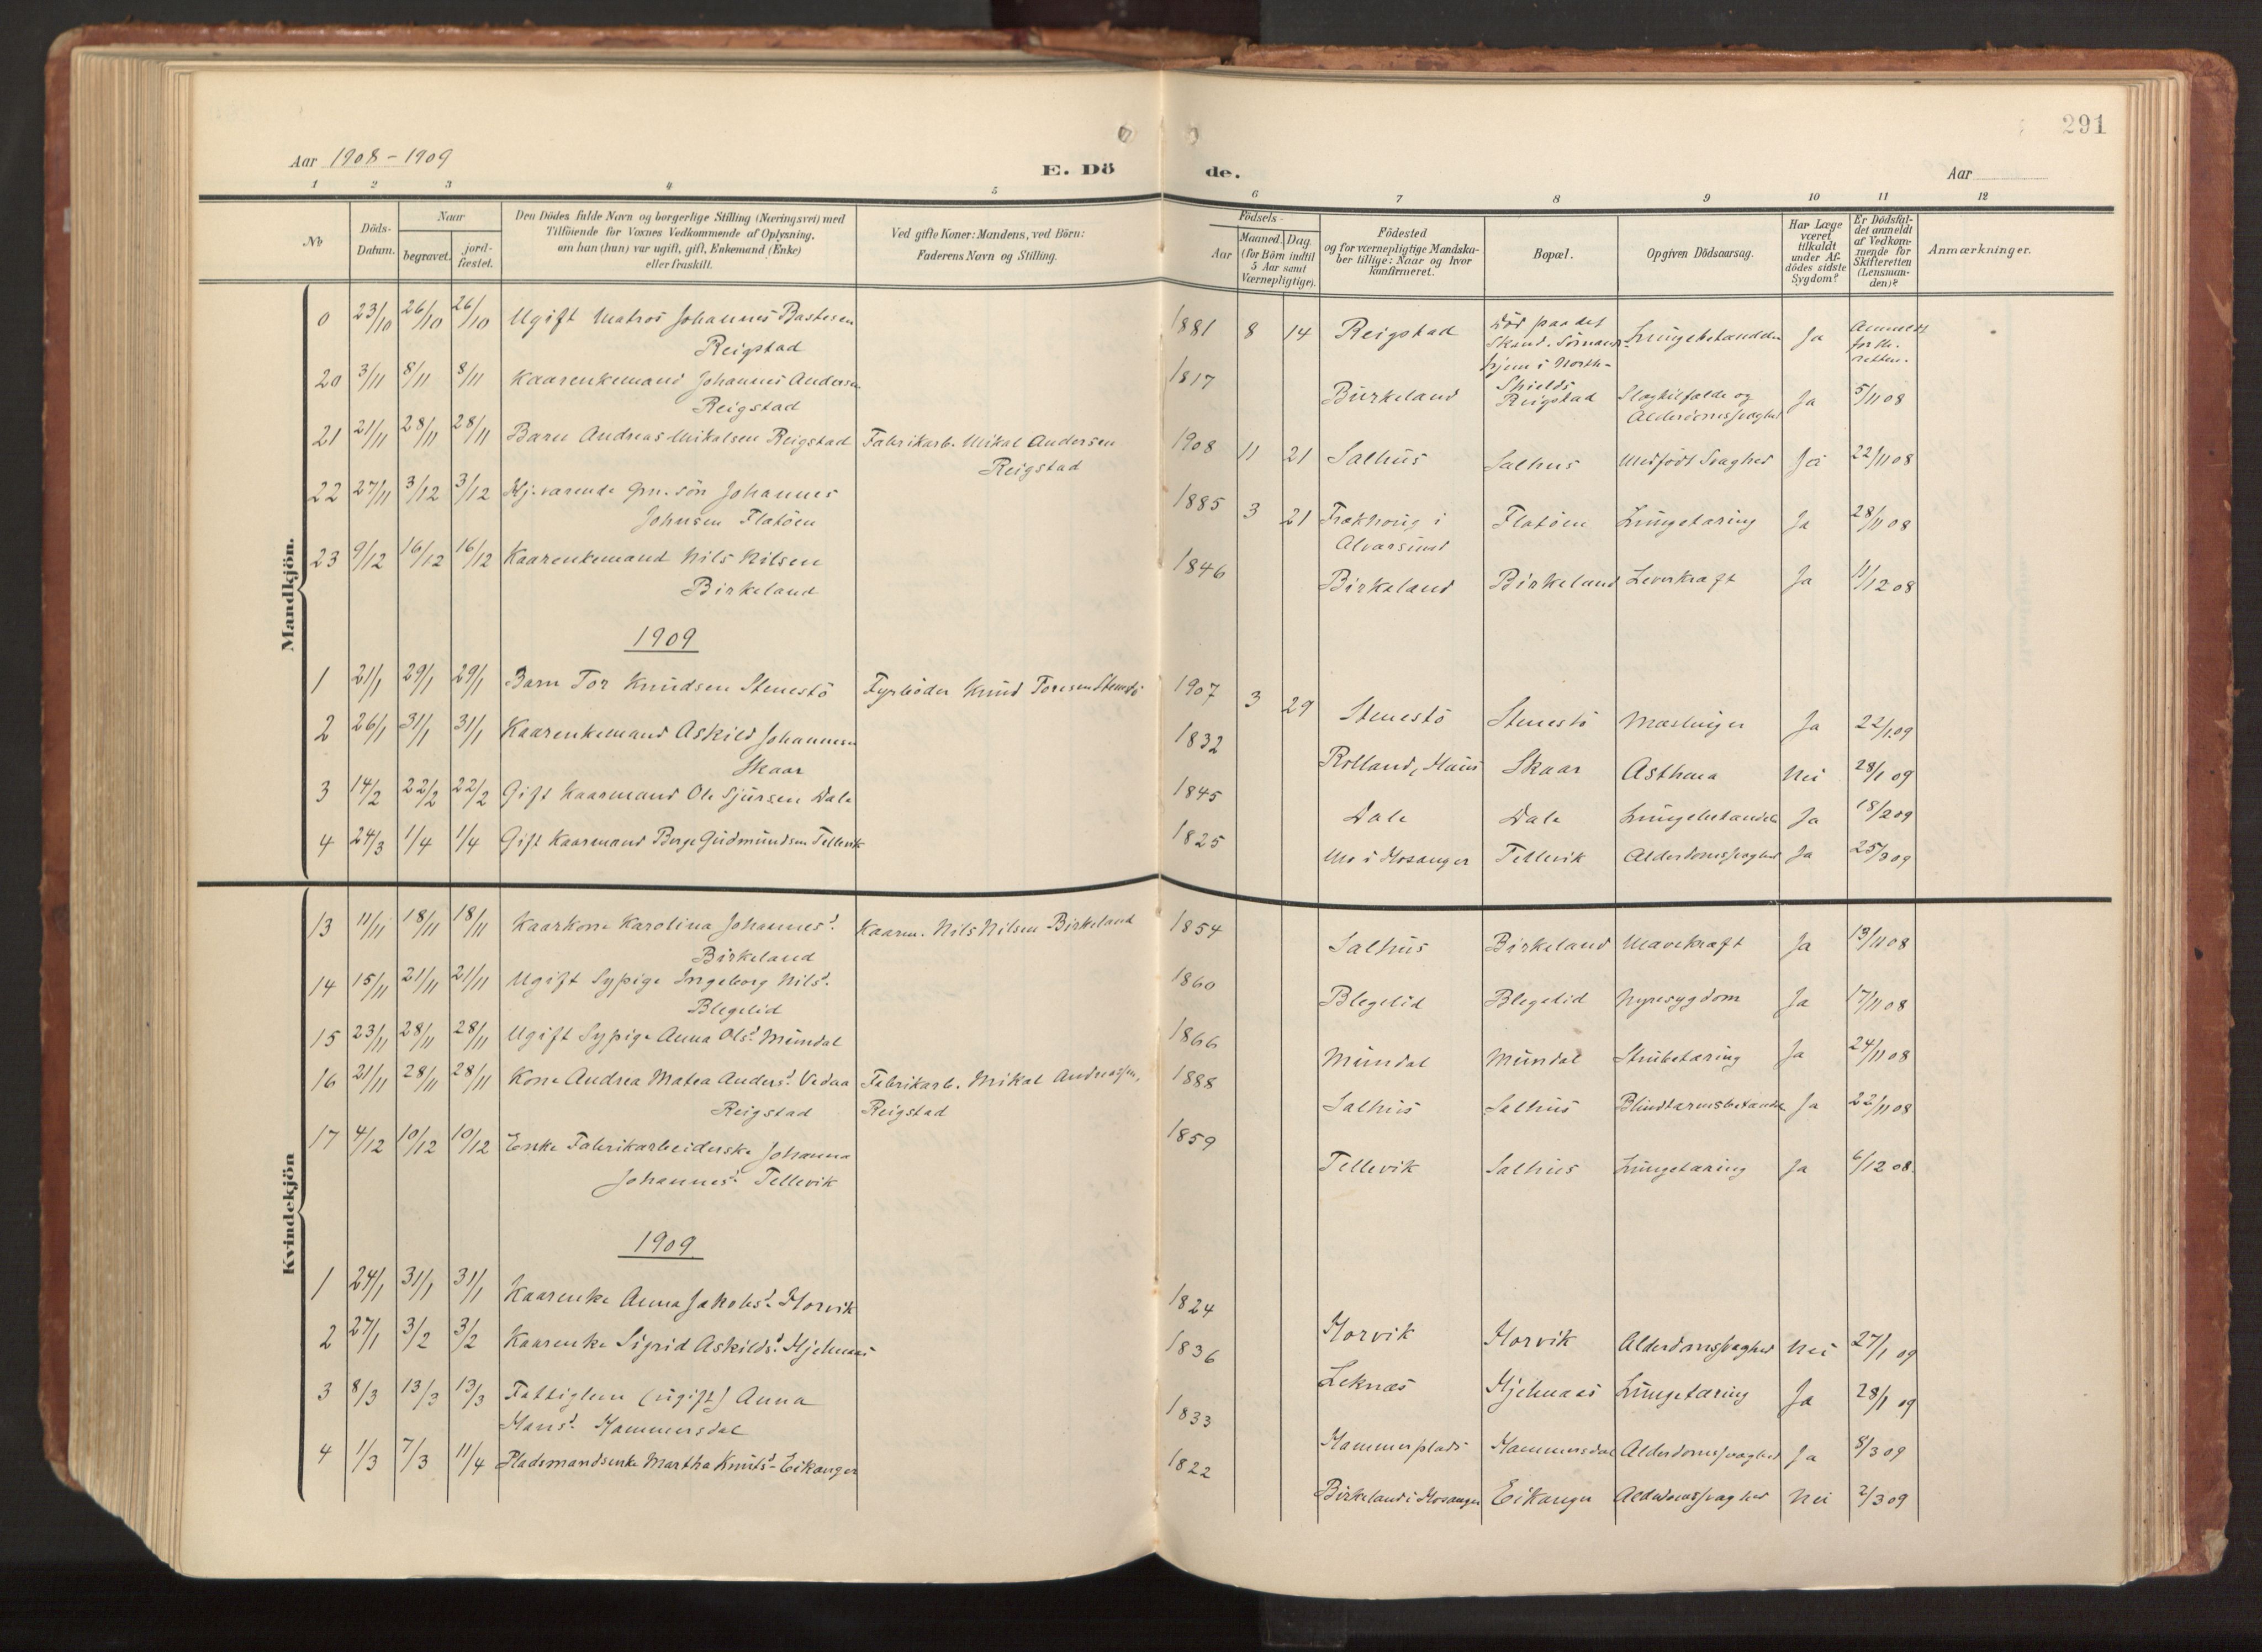 291
Aar 1908-1909
E. Dö
de.
Aar
1 2 3 4 5 6 7 8 9 10 11 12
No
Döds-Datum.
Naar
begravet.
jord-fæstet.
Den Dödes fulde Navn og borgerlige Stilling (Næringsvei) med
Tilföiende for Voxnes Vedkommende af Oplysning,
om han (hun) var ugift, gift, Enkemand (Enke)
eller fraskilt.
Ved gifte Koner: Mandens, ved Börn:
Faderens Navn og Stilling.
Födsels-
Aar
Maaned. Dag.
(for Börn indtil
5 Aar samt
Værnepligtige).
Födested
og for værnepligtige Mandska-
ber tillige: Naar og hvor
konfirmeret.
Bopæl.
Opgiven Dödsaarsag.
Har Læge
været
tilkaldt
under Af-
dödes sidste
Sygdom?
Er Dödsfal-
det anmeldt
af Vedkom-
mende for
Skifteretten
(Lensman-
den)?
Anmærkninger.
Mandkjön.
0 23/10 26/10 26/10 Ugift Matros Johannes Bastesen
Reigstad
1881 8 14 Reigstad Död paa det
Skand. Sömands-
hjem i North-
Shields Lungebetændelse Ja
20 3/11 8/11 8/11 Kaarenkemand Johannes Andersen
Reigstad
1817 Birkeland Reigstad Slagtilfælde og
Alderdomssvaghed Ja 5/11 08
21 21/11 28/11 28/11 Barn Andreas Mikalsen Reigstad Fabrikarb. Mikal Andersen
Reigstad
1908 11 21 Salhus Salhus Medfödt Svaghed Ja 22/11 08
22 27/11 3/12 3/12 Hj.værende Gm. sön Johannes
Johnsen Flatöen
1885 3 21 Frækhoug i
Alversund Flatöen Lungetæring Ja 28/11 08
23 9/12 16/12 16/12 Kaarenkemand Nils Nilsen
Birkeland
1846 Birkeland Birkeland Leverkræft Ja 11/12 08
1909
1 21/1 29/1 29/1 Barn Tor Knudsen Stenestö Fyrböder Knud Toresen Stenestö 1907 3 29 Stenestö Stenestö Mæslinger Ja 22/1 09
2 26/1 31/1 31/1 Kaarenkemand Askild Johannesen
Skaar
1832 Rolland, Haus Skaar Asthma Nei 28/1 09
3 14/2 22/2 22/2 Gift Kaarmand Ole Sjursen Dale 1845 Dale Dale Lungebetændelse Ja 18/2 09
4 24/3 1/4 1/4 Gift Kaarmand Børge Gudmundsen Tellevik 1825 Mo i Hosanger Tellevik Alderdomssvaghed Ja 25/3 09
Kvindekjön
13 11/11 18/11 18/11 Kaarkone Karolina Johannesd.
Birkeland
Kaarm. Nils Nilsen Birkeland 1854 Salhus Birkeland Mavekræft Ja 13/11 08
14 15/11 21/11 21/11 Ugift Sypige Ingeborg Nilsd.
Blegelid
1860 Blegelid Blegelid Nyresygdom Ja 17/11 08
15 23/11 28/11 28/11 Ugift Sypige Anna Olsd. Mundal 1866 Mundal Mundal Strubetæring Ja 24/11 08
16 21/11 28/11 28/11 Kone Andrea Matea Andersd. Vedaa
Reigstad
Fabrikarb. Mikal Andreassen,
Reigstad
1888 Salhus Salhus Blindtarmsbetændelse Ja 22/11 08
17 4/12 10/12 10/12 Enke Fabrikarbeiderske Johanna
Johannesd. Tellevik
1859 Tellevik Salhus Lungetæring Ja 6/12 08
1909
1 24/1 31/1 31/1 Kaarenke Anna Jakobsd. Horvik 1824 Horvik Horvik Alderdomssvaghed Nei 27/1 09
2 27/1 3/2 3/2 Kaarenke Sigrid Askildsd. Hjelmaas 1836 Leknæs Hjelmaas Lungetæring Ja 28/1 09
3 8/3 13/3 13/3 Fattiglem (ugift) Anna
Hansd. Hammersdal
1833 Hammerplads Hammersdal Alderdomssvaghed Ja 8/3 09
4 1/3 7/3 11/4 Pladsmandsenke Martha Knutsd. Eikanger 1822 Birkeland i Hosanger Eikanger Alderdomssvaghed Nei 2/3 09